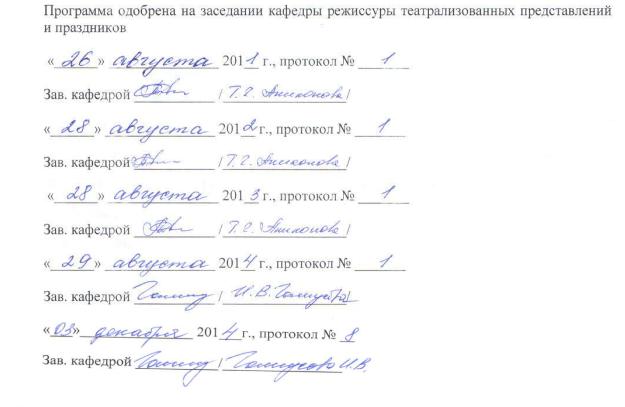 Программа одобрена на заседании кафедры режиссуры театрализованных представлений
и праздников
« 26 » августа 2011 г., протокол № 1
Зав. кафедрой / Т.Г. /
« 28 » августа 2012 г., протокол № 1
Зав. кафедрой / Т.Г. /
« 28 » августа 2013 г., протокол № 1
Зав. кафедрой / Т.Г. /
« 29 » августа 2014 г., протокол № 1
Зав. кафедрой / И.В. /
«03» декабря 2014 г., протокол № 8
Зав. кафедрой / И.В.